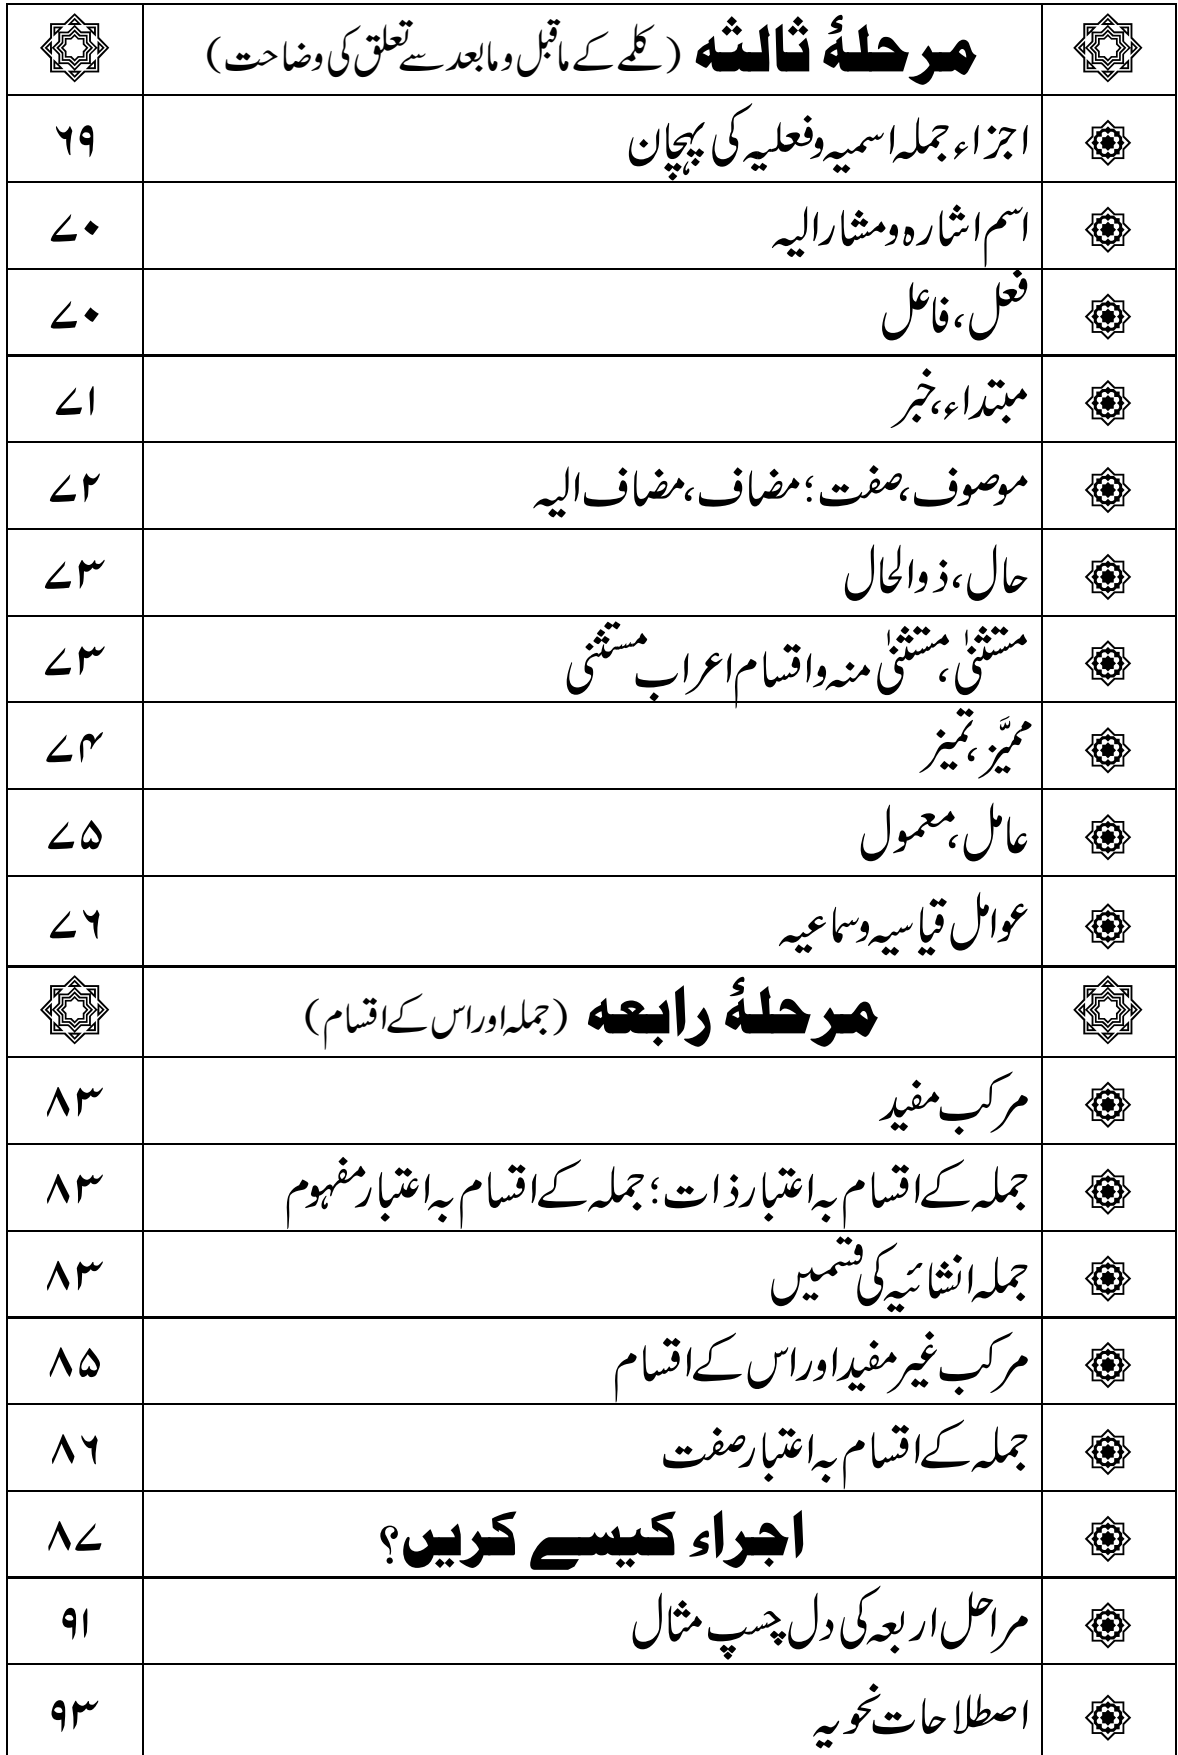 مرحلۂ ثالثہ (کلمے کے ماقبل و مابعد سے تعلق کی وضاحت)
اجزاء جملہ اسمیہ وفعلیہ کی پہچان ۶۹
اسم اشارہ و مشار الیہ ۷۰
فعل، فاعل ۷۰
مبتداء، خبر ۷۱
موصوف، صفت؛ مضاف، مضاف الیہ ۷۲
حال، ذو الحال ۷۳
مستثنیٰ، مستثنیٰ منہ و اقسام اعراب مستثنی ۷۳
ممیَّز، تمیز ۷۴
عامل، معمول ۷۵
عوامل قیاسیہ وسماعیہ ۷۶
مرحلۂ رابعہ (جملہ اور اس کے اقسام)
مرکب مفید ۸۳
جملہ کے اقسام بہ اعتبار ذات؛ جملہ کے اقسام بہ اعتبار مفہوم ۸۳
جملہ انشائیہ کی قسمیں ۸۳
مرکب غیر مفید اور اس کے اقسام ۸۵
جملہ کے اقسام بہ اعتبار صفت ۸۶
اجراء کیسے کریں؟ ۸۷
مراحل اربعہ کی دل چسپ مثال ۹۱
اصطلاحات نحویہ ۹۳